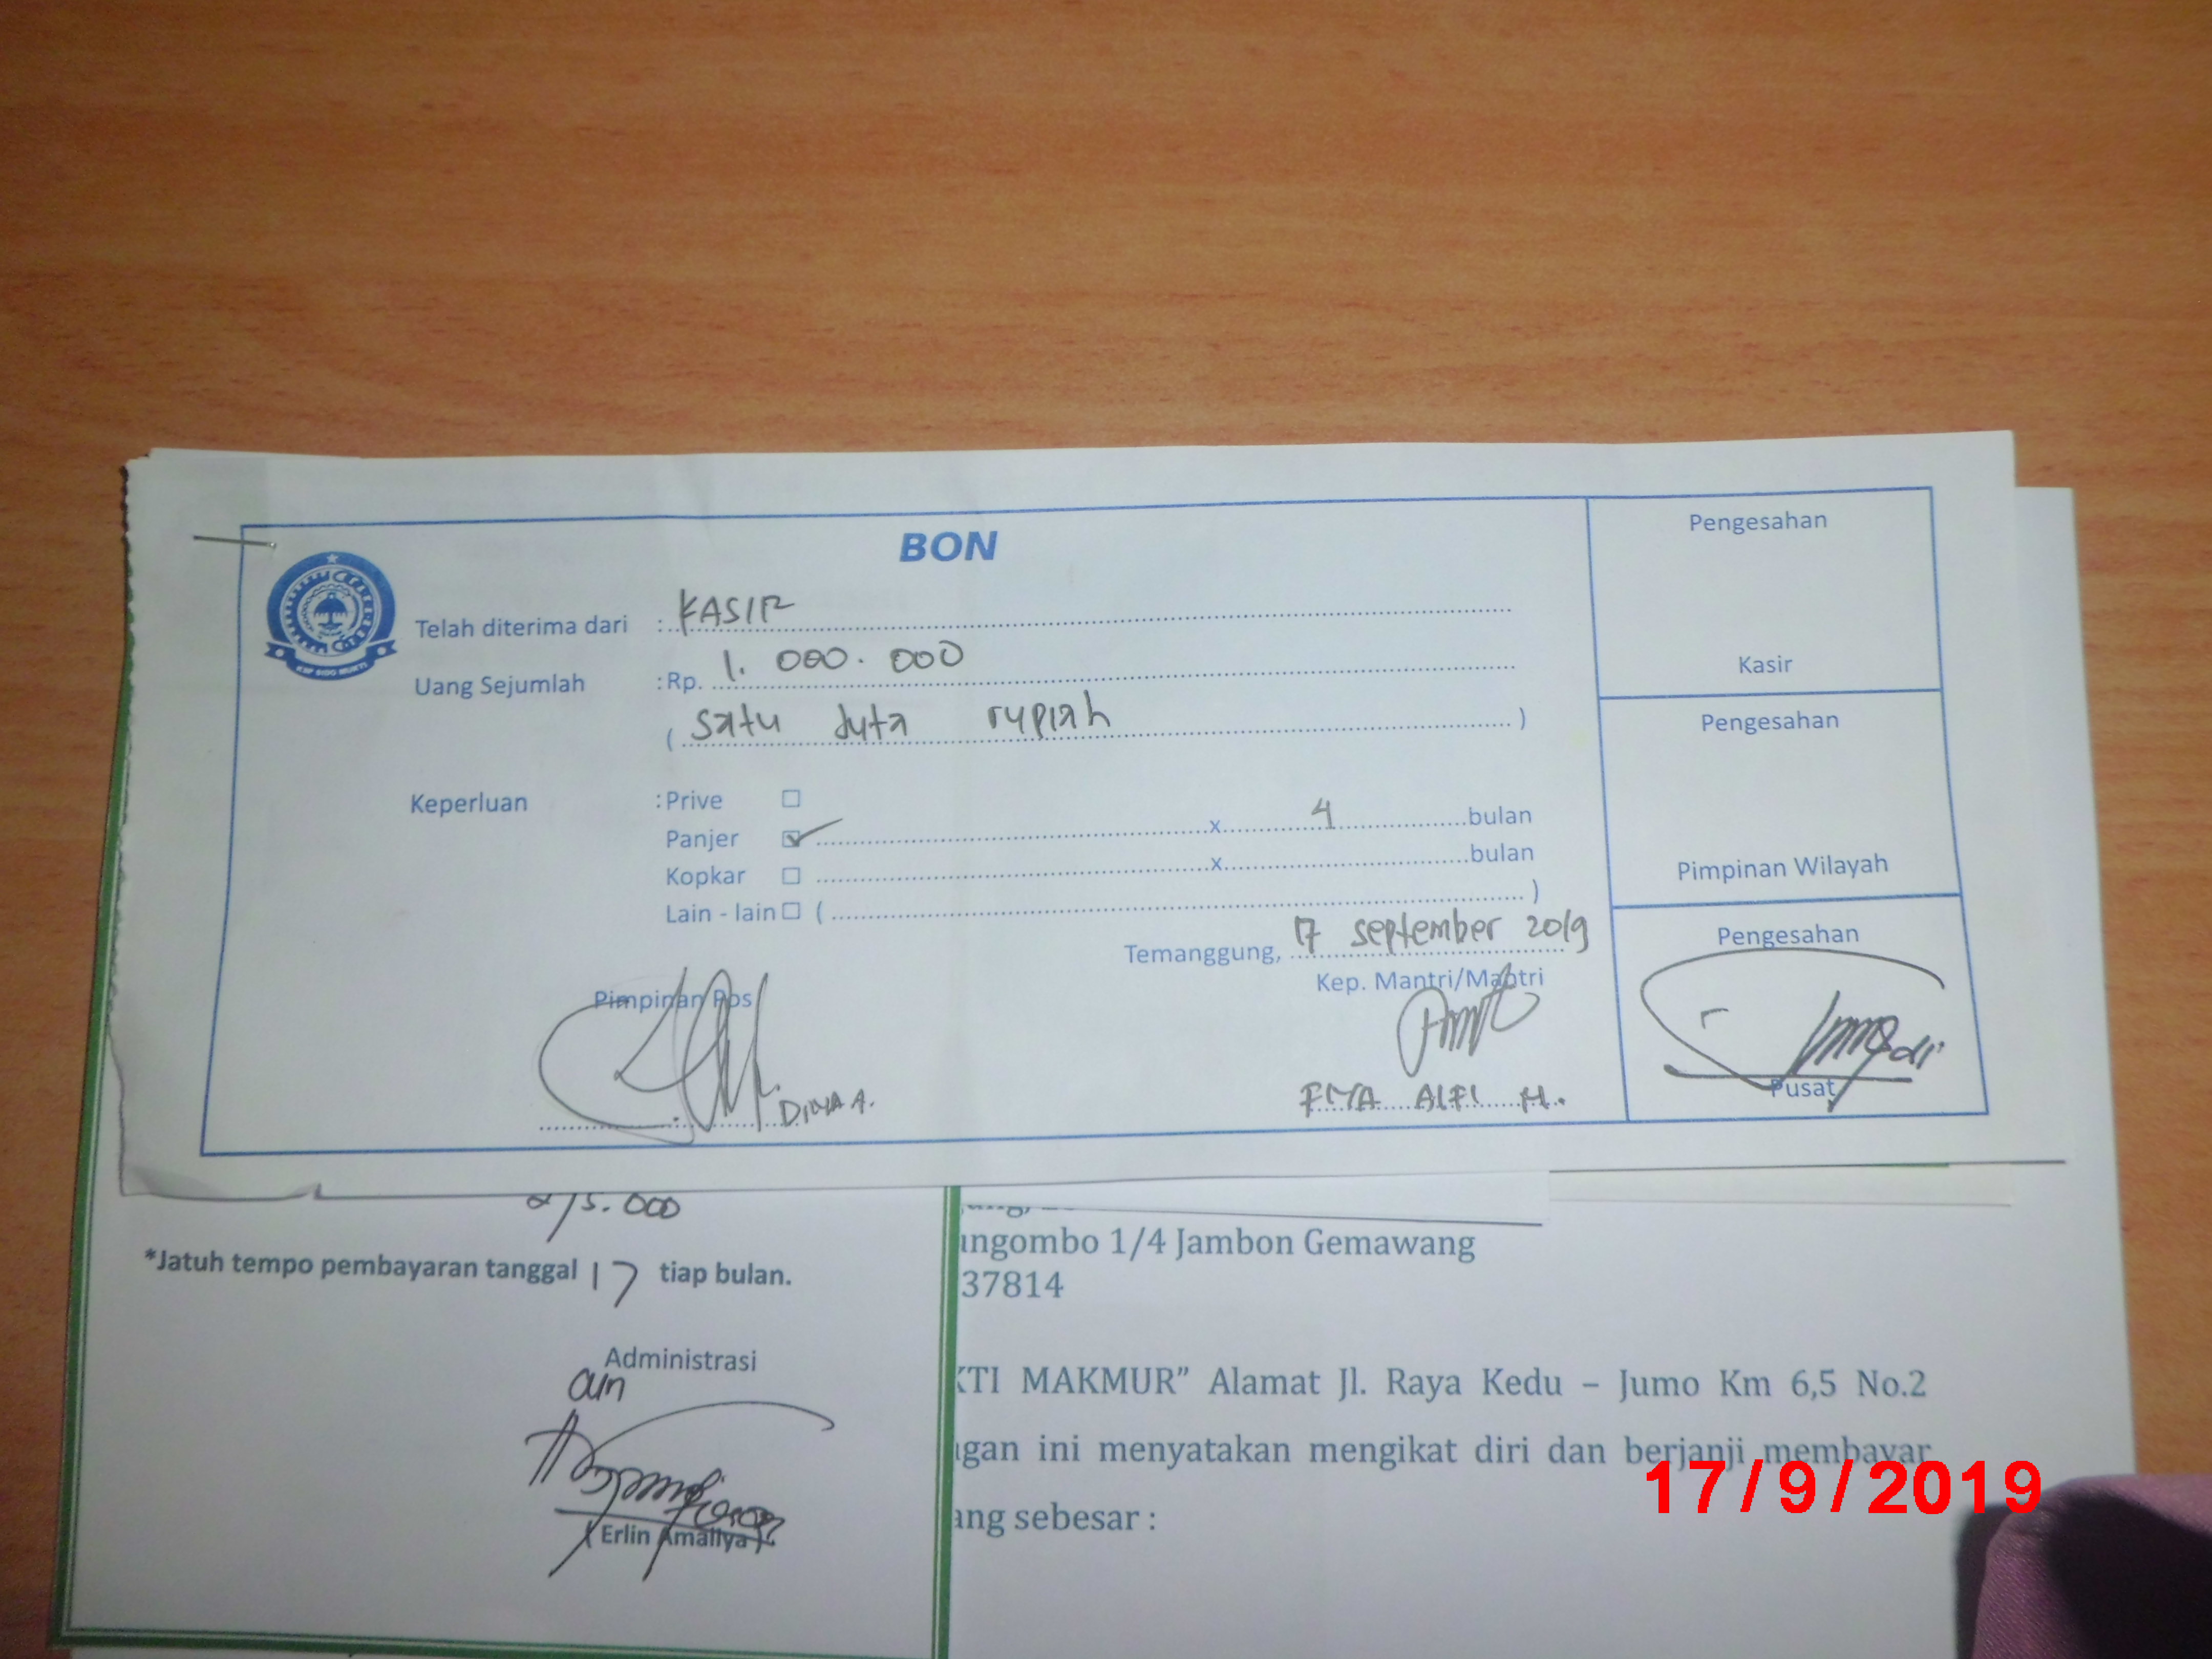 BON
Telah diterima dari : KASIR
Uang Sejumlah : Rp. 1.000.000
( satu juta rupiah )
Keperluan : Prive
Panjer x 4 bulan
Kopkar x bulan
Lain - lain ( )
Temanggung, 17 september 2019
Pimpinan Pos
Kep. Mantri/Mantri
DINA A.
ALFI H.
Pengesahan
Kasir
Pengesahan
Pimpinan Wilayah
Pengesahan
Pusat
KSP SIDO MUKTI
275.000
*Jatuh tempo pembayaran tanggal 17 tiap bulan.
Administrasi
( Erlin Amaliya )
ngombo 1/4 Jambon Gemawang
37814
KTI MAKMUR” Alamat Jl. Raya Kedu – Jumo Km 6,5 No.2
gan ini menyatakan mengikat diri dan berjanji membayar
ang sebesar :
17/9/2019